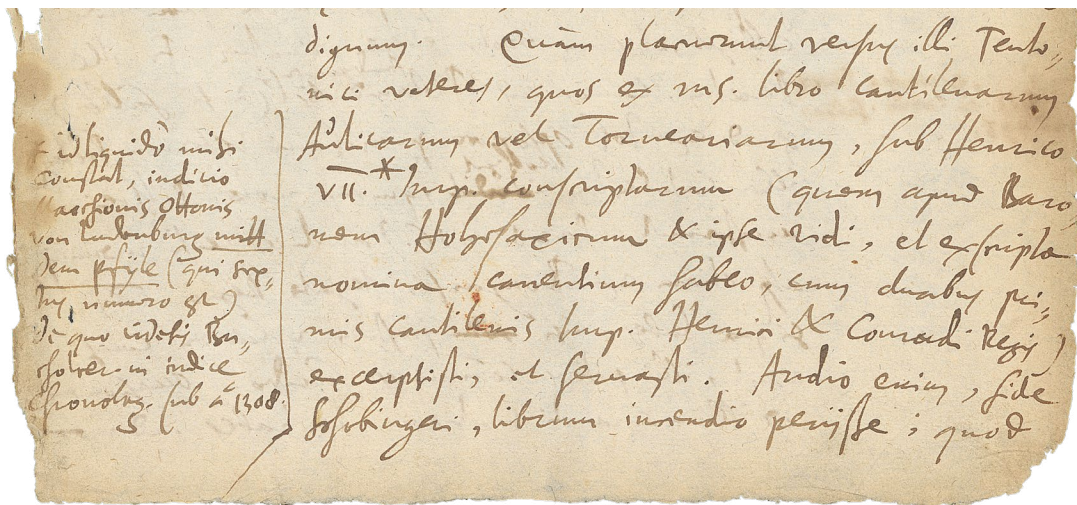 dignum. Quam placuerunt versus illi Teuto-
nici veteres, quos ex ms. libro cantilenarum
Aulicarum vel Torneariarum, sub Henrico
VII.* Imp. conscriptarum (quem apud Baro-
nem Hohosaxicum & ipse vidi, et exscripta
nomina canentium habeo, cum duabus pri-
mis cantilenis Imp. Henrici & Conradi Regis)
excerpsisti, et servasti. Audio enim, fide
Schobingeri, librum incendio periisse; quod
* id liquido mihi
constat, indicio
Marchionis Ottonis
von Brandenburg mitt
dem Pfyle (qui sex-
tus numero est)
de quo videtis Bu-
cholcer. in indice
chronolog. sub aº 1308.